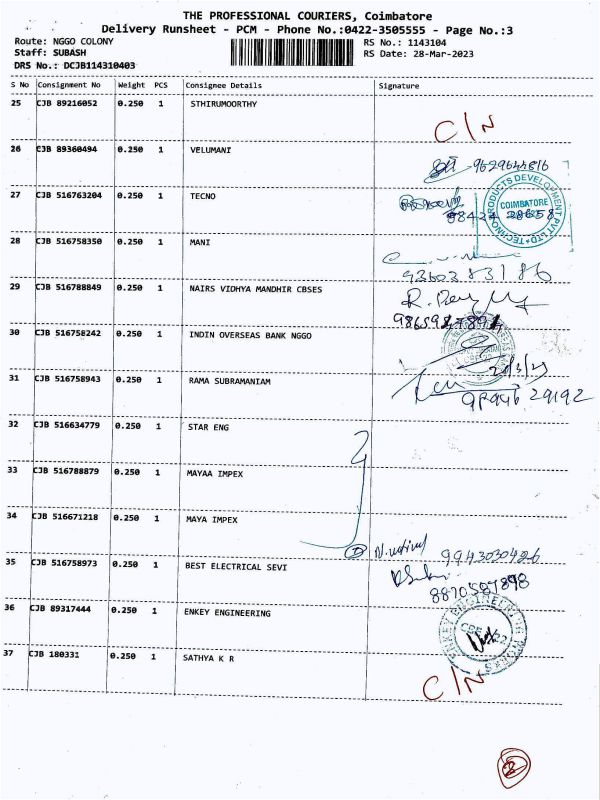 THE PROFESSIONAL COURIERS, Coimbatore
Delivery Runsheet - PCM - Phone No.:0422-3505555 - Page No.:3
Route: NGGO COLONY RS No.: 1143104
Staff: SUBASH RS Date: 28-Mar-2023
DRS No.: DCJB114310403
S No Consignment No Weight PCS Consignee Details Signature
25 CJB 89216052 0.250 1 STHIRUMOORTHY
C/N
26 CJB 89360494 0.250 1 VELUMANI
9629644816
27 CJB 516763204 0.250 1 TECNO
COIMBATORE
TECHNO PRODUCTS DEVELOPMENT PVT LTD
98424 28658
28 CJB 516758350 0.250 1 MANI
93603 83186
29 CJB 516788849 0.250 1 NAIRS VIDHYA MANDHIR CBSES
30 CJB 516758242 0.250 1 INDIN OVERSEAS BANK NGGO
31 CJB 516758943 0.250 1 RAMA SUBRAMANIAM
29192
32 CJB 516634779 0.250 1 STAR ENG
33 CJB 516788879 0.250 1 MAYAA IMPEX
34 CJB 516671218 0.250 1 MAYA IMPEX
9943030426
35 CJB 516758973 0.250 1 BEST ELECTRICAL SEVI
8870587898
36 CJB 89317444 0.250 1 ENKEY ENGINEERING
ENKEY ENGINEERING WORKS
37 CJB 180331 0.250 1 SATHYA K R
C/N